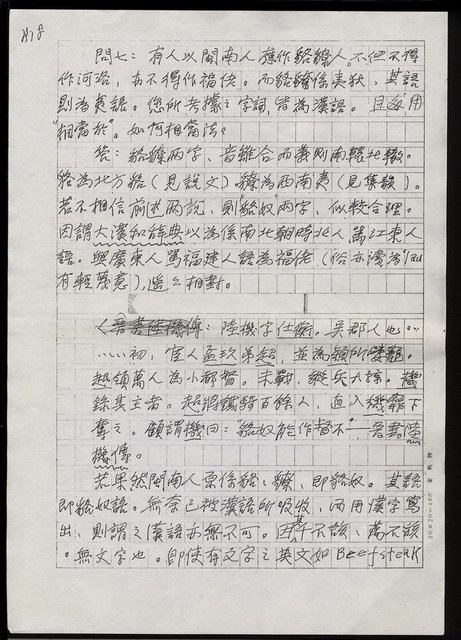 A18
問七：有人以閩南人應作貉獠人。不但不得
作河洛，亦不得作福佬。而貉獠係夷狄，其語
則為夷語。您所考據之字詞，皆為漢語。且每用
"相當於"。如何相當法？
答：貉獠兩字、音雖合而義則南轅北轍。
貉為北方貉（見說文）獠為西南夷（見集韻）。
若不相信前述兩說，則貉奴"兩字，似較合理。
因謂大漢和辭典以為係南北朝時北人罵江東人
語。與廣東人罵福建人語為福佬（俗亦淺為"lau
有輕蔑意），遙之相對。
陸機傳：陸機字仕衡。吳郡人也…
……初，宦人孟玖弟超，並為穎所嬖寵。
超領萬人為小都督。未戰，縱兵大掠。機
錄其主者。超將鐵騎百餘人，直入機麾下
奪之。顧謂機曰：貉奴能作督不——晉書陸
機傳。
若果然閩南人原係貉、獠、即貉奴。其語
即貉奴語。無奈已被漢語所吸收，而用漢字寫
出，則謂之漢語亦無不可。其千不該，萬不該
。無文字也。即使有文字之英文如Beefsteak
20×20=400